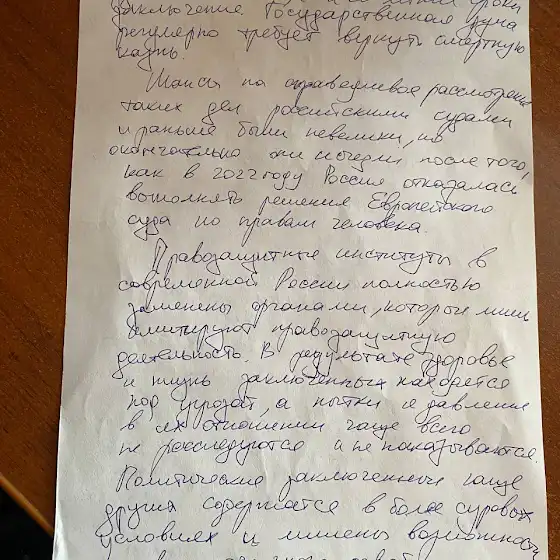 сроки
заключение. Государственная дума
регулярно требует вернуть смертную
казнь.
Шансы на справедливое рассмотрение
таких дел российскими судами
и раньше были невелики, но
окончательно они исчезли после того,
как в 2022 году Россия отказалась
выполнять решения Европейского
суда по правам человека.
Правозащитные институты в
современной России полностью
заменены органами, которые лишь
имитируют правозащитную
деятельность. В результате здоровье
и жизнь заключённых находятся
под угрозой, а пытки и давление
в их отношении чаще всего
не расследуются и не наказываются.
Политические заключенные чаще
других содержатся в более суровых
условиях и лишены возможности